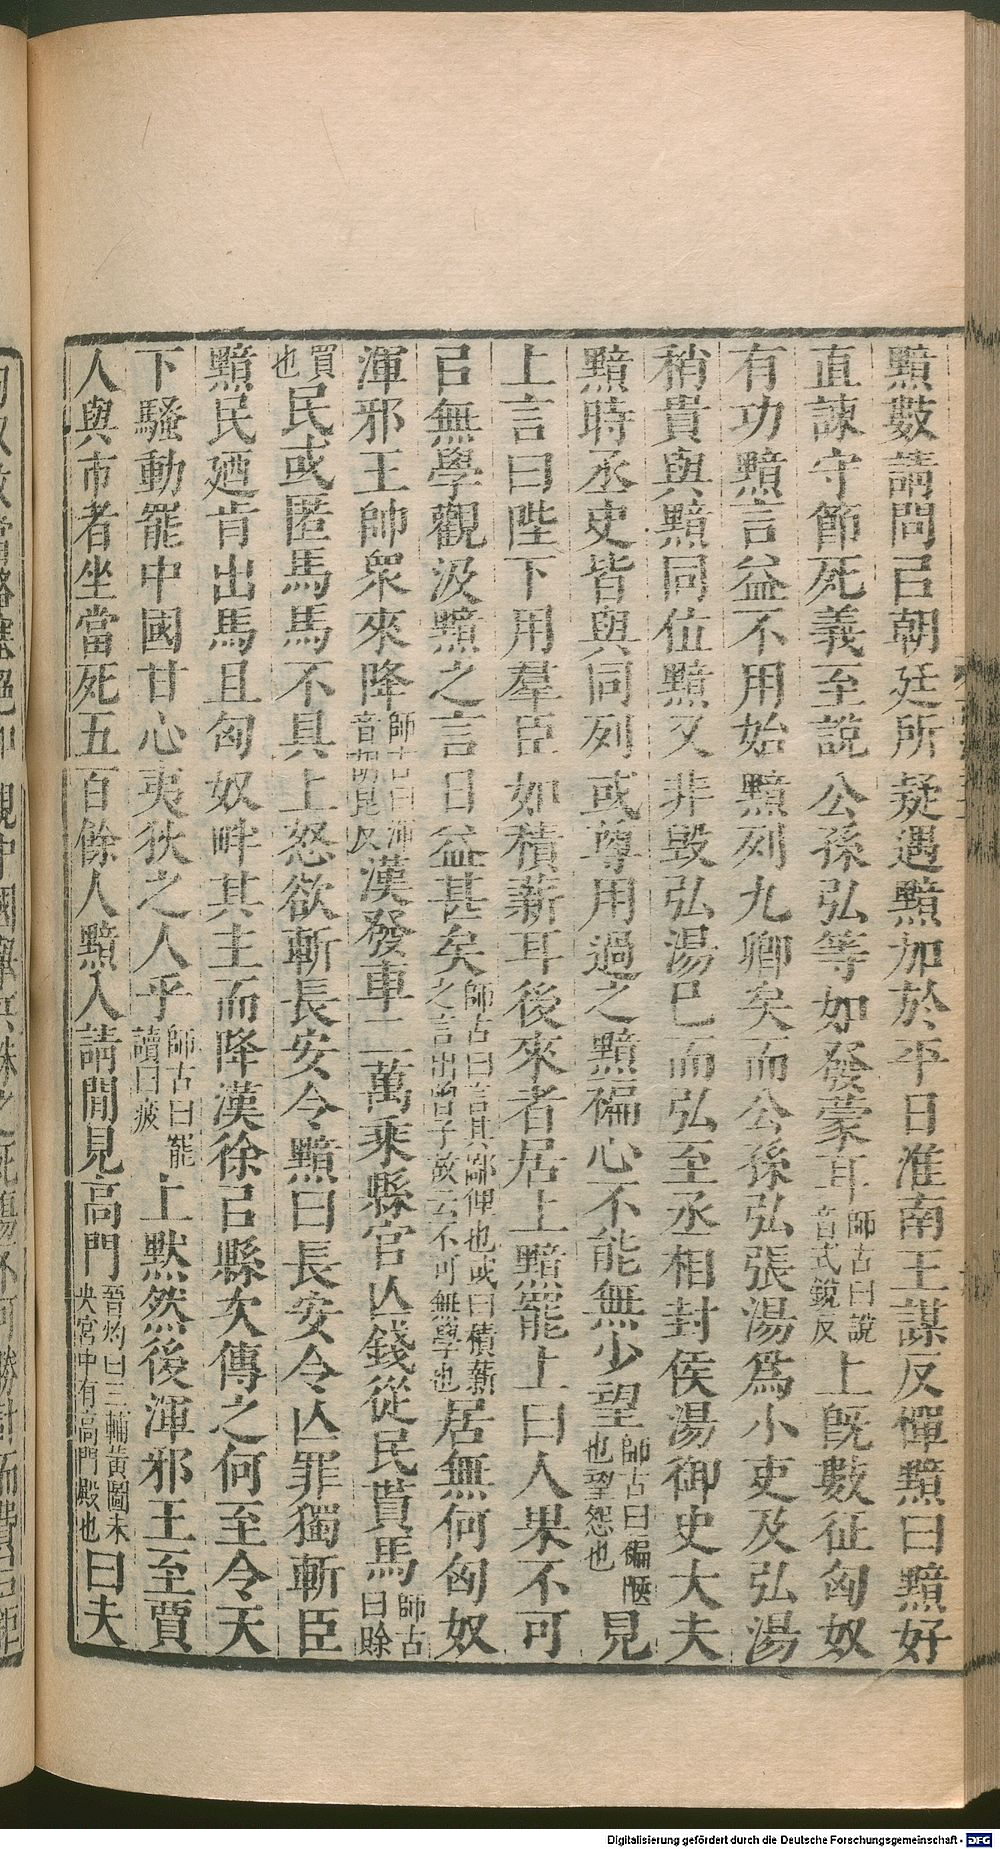 黯數請問㠯朝廷所疑遇黯加於平日淮南王謀反憚黯曰黯好
直諫守節死義至說公孫弘等如發蒙耳師古曰說音式銳反上旣數征匈奴
有功黯言益不用始黯列九卿矣而公孫弘張湯爲小吏及弘湯
稍貴與黯同位黯又非毀弘湯已而弘至丞相封侯湯御史大夫
黯時丞史皆與同列或尊用過之黯褊心不能無少望師古曰褊陿也望怨也見
上言曰陛下用羣臣如積薪耳後來者居上黯罷上曰人果不可
㠯無學觀汲黯之言日益甚矣師古曰言其鄙俚也或曰積薪之言出曾子故云不可無學也居無何匈奴
渾邪王帥眾來降師古曰渾音胡昆反漢發車二萬乘縣官亾錢從民貰馬師古曰賒
買也民或匿馬馬不具上怒欲斬長安令黯曰長安令亾罪獨斬臣
黯民廼肯出馬且匈奴畔其主而降漢徐㠯縣次傳之何至令天
下騷動罷中國甘心夷狄之人乎師古曰罷讀曰疲上默然後渾邪王至賈
人與市者坐當死五百餘人黯入請閒見高門晉灼曰三輔黃圖未央宮中有高門殿也曰夫
Digitalisierung gefördert durch die Deutsche Forschungsgemeinschaft - DFG